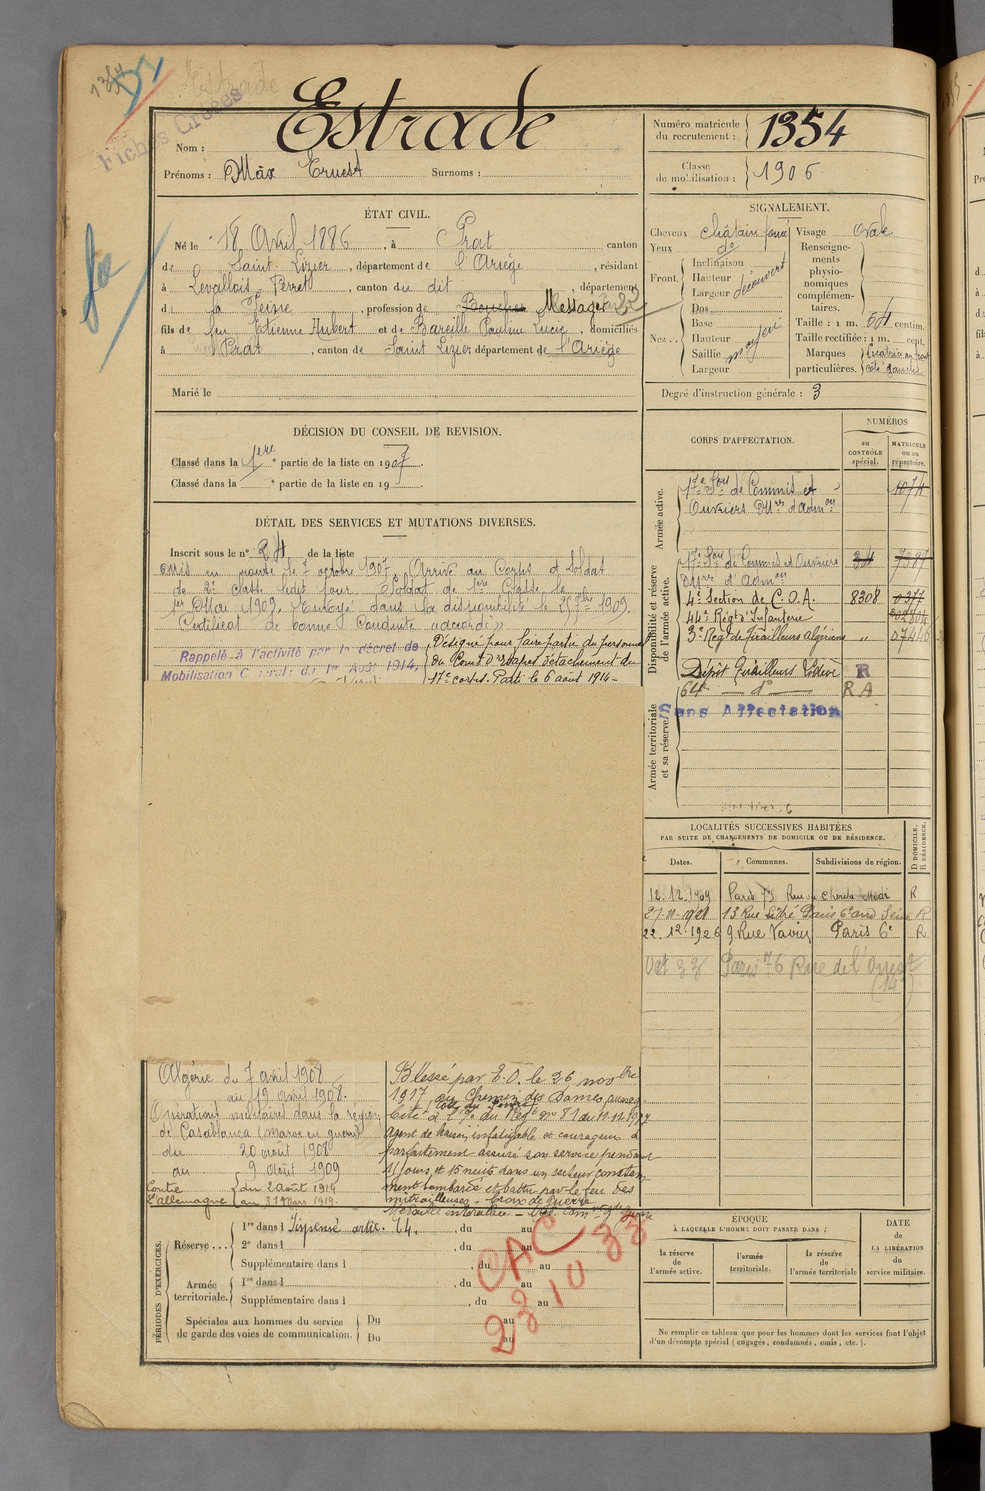 1354
Estrade
Fiches Croisées
Nom : Estrade
Prénoms : Max Ernest Surnoms :
Numéro matricule du recrutement : 1354
Classe de mobilisation : 1906
ÉTAT CIVIL.
Né le 18 Avril 1886, à Prat canton
de Saint-Lizier, département de l'Ariège, résidant
à Levallois-Perret, canton du dit, département
d la Seine, profession de Boucher Messager
fils de feu Etienne Hubert et de Bareille Pauline Lucie, domiciliés
à Prat, canton de Saint Lizier département de l'Ariège
Marié le
SIGNALEMENT.
Cheveux châtain foncé
Yeux do
Front Inclinaison
Hauteur découvert
Largeur
Nez Dos
Base
Hauteur moyen
Saillie
Largeur
Visage Ovale
Renseignements physionomiques complémentaires.
Taille : 1 m. 54 centim.
Taille rectifiée : 1 m. cent.
Marques particulières. Cicatrice au front côté gauche
Degré d'instruction générale : 3
DÉCISION DU CONSEIL DE REVISION.
Classé dans la 1ere partie de la liste en 1907.
Classé dans la e partie de la liste en 19
DÉTAIL DES SERVICES ET MUTATIONS DIVERSES.
Inscrit sous le n° 24 de la liste
Mis en route le 7 octobre 1907. Arrivé au Corps et Soldat
de 2e classe ledit jour. Soldat de 1ere Classe le
1er Mai 1909. Envoyé dans la disponibilité le 25 7bre 1909.
Certificat de bonne Conduite "accordé"
Rappelé à l'activité par le décret de
Mobilisation Générale du 1er Août 1914,
Désigné pour faire partie du personnel
du Point d'étapes détachement du
17e corps. Parti le 6 août 1914 -
CORPS D'AFFECTATION.
NUMÉROS
au CONTRÔLE spécial.
MATRICULE OU AU répertoire.
Armée active.
17e Son de Commis et
Ouvriers Mres d'admon
1074
Disponibilité et réserve de l'armée active.
17e Son de Commis et Ouvriers
Mres d'admon
34
4e Section de C.O.A. 8308
44e Régt d'Infanterie
3e Régt de Tirailleurs algériens " 07446
Dépôt Tirailleurs R
64 — do — RA
Armée territoriale et sa réserve.
Sans Affectation
LOCALITÉS SUCCESSIVES HABITÉES
PAR SUITE DE CHANGEMENTS DE DOMICILE OU DE RÉSIDENCE.
Dates. Communes. Subdivisions de région. D DOMICILE. R RÉSIDENCE.
12.12.1909 Paris 73 Rue du Cherche Midi R
27-11-1921 13 Rue Littré Paris 6e arr Seine R
22.12.1926 9 Rue Vavin Paris 6e R
Oct 33 Paris 76 Rue de l'Ouest
(14e)
Algérie du 7 avril 1908
au 19 avril 1908.
Opérations militaires dans la région
de Casablanca (Maroc en guerre)
du 20 août 1908
au 9 Août 1909
Contre l'allemagne du 2 août 1914
au 31 Mars 1919.
Blessé par E.O. le 26 novbre
1917 au Chemin des Dames
Cité à l'O. du Régt no 81 du 11.11.1917
Agent de liaison infatigable et courageux a
parfaitement assuré son service pendant
11 jours et 15 nuits dans un secteur constam-
ment bombardé et battu par le feu des
mitrailleuses - Croix de guerre
Médaille interalliée - Méd. Comve Gde Guerre
PÉRIODES D'EXERCICES.
Réserve... 1re dans l Dispensé artcle 64, du au
2e dans l , du au
Supplémentaire dans l , du au
Armée territoriale. 1re dans l , du au
Supplémentaire dans l , du au
Spéciales aux hommes du service de garde des voies de communication. Du au
Du au
CAC 33
23 10
ÉPOQUE
À LAQUELLE L'HOMME DOIT PASSER DANS :
la réserve de l'armée active.
l'armée territoriale.
la réserve de l'armée territoriale
DATE de LA LIBÉRATION du service militaire.
Ne remplir ce tableau que pour les hommes dont les services font l'objet
d'un décompte spécial (engagés, condamnés, omis, etc.).